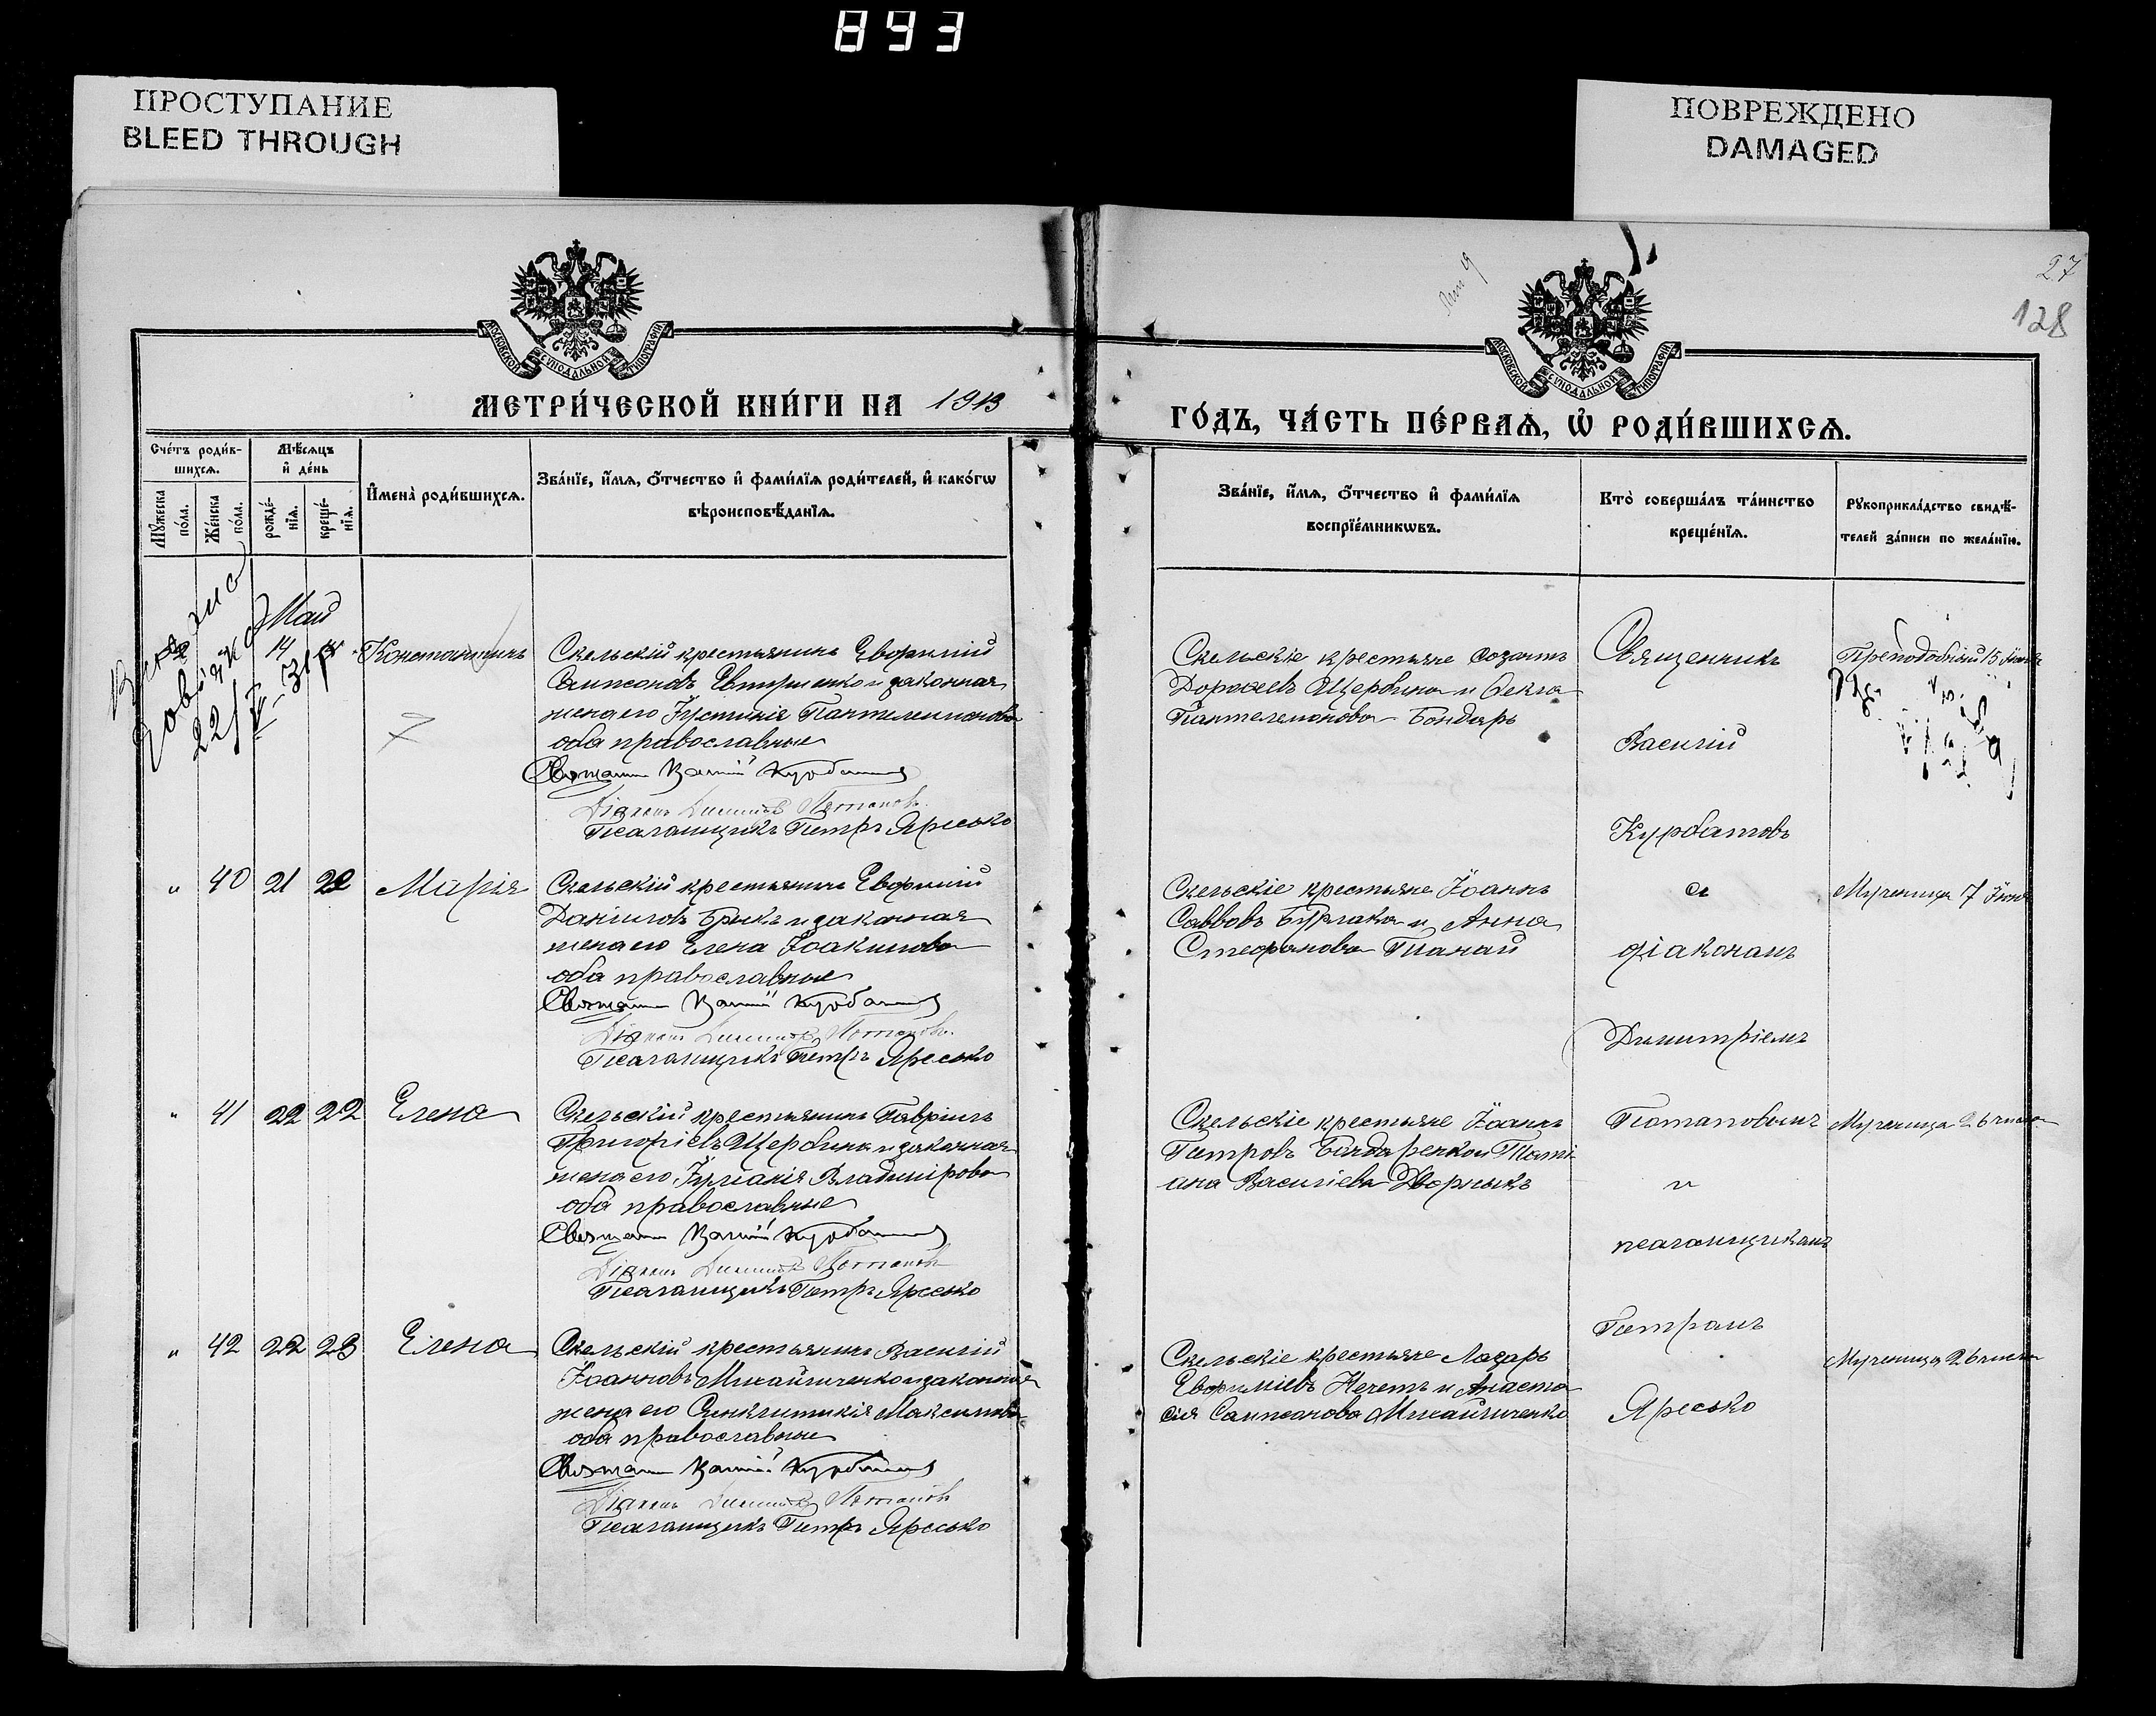 893
ПРОСТУПАНИЕ
BLEED THROUGH
ПОВРЕЖДЕНО
DAMAGED
27
128
МОСКОВСКОЙ СѴНОДАЛЬНОЙ ТИПОГРАФІИ
МОСКОВСКОЙ СѴНОДАЛЬНОЙ ТИПОГРАФІИ
МЕТРИ́ЧЕСКОЙ КНИ́ГИ НА 1913
ГО́ДЪ, ЧА́СТЬ ПЕ́РВАѦ, Ѡ҆ РОДИ́ВШИХСѦ.
Сче́тъ роди́в-
шихсѧ.
Мѣ́сяцъ
и҆ де́нь
Мꙋ́жеска по́ла.
Же́нска по́ла.
рожде́-
нїѧ.
креще́-
нїѧ.
И҆мена̀ роди́вшихсѧ.
Зва́нїе, и҆́мѧ, ѻ҆́тчество и҆ фами́лїѧ роди́телей, и҆ како́гѡ
вѣроисповѣ́данїѧ.
Зва́нїе, и҆́мѧ, ѻ҆́тчество и҆ фами́лїѧ
воспрїе́мникѡвъ.
Кто̀ соверша́лъ та́инство
креще́нїѧ.
Рꙋкоприкла́дство свидѣ́-
телей за́писи по жела́нїю.
Май
14
Константинъ
Скельскій крестьянинъ Евфимій
Сампсоновъ и законная
жена его Іустинія Пантелеимонова
оба православные
Священникъ Василій Курбатовъ
Діаконъ Димитрій Потаповъ
Псаломщикъ Петръ Яресько
Скельскіе крестьяне Созонтъ
Дорофеевъ Щербина и Фекла
Пантелеимонова Бондарь
Священникъ
Василій
Курбатовъ
Преподобный 15 Іюня
" 40 21 22 Марія
Скельскій крестьянинъ Евфимій
Даніиловъ и законная
жена его Елена Іоакимова
оба православные
Священникъ Василій Курбатовъ
Діаконъ Димитрій Потаповъ
Псаломщикъ Петръ Яресько
Скельскіе крестьяне Іоаннъ
Савовъ Бурлака и Анна
Стефанова Панай
съ
діакономъ
Димитріемъ
Мученица 7 Іюня
" 41 22 22 Елена
Скельскій крестьянинъ Гавріилъ
Григоріевъ Щербина и законная
жена его Іуліанія Владимірова
оба православные
Священникъ Василій Курбатовъ
Діаконъ Димитрій Потаповъ
Псаломщикъ Петръ Яресько
Скельскіе крестьяне Іоаннъ
Петровъ Бондаренко и Тати-
ана Васильева
Потаповымъ
и
псаломщикомъ
Петромъ
Мученица 26 числа
" 42 22 23 Елена
Скельскій крестьянинъ Василій
Іоанновъ Михайличенко и законная
жена его Синклитикія Максимова
оба православные
Священникъ Василій Курбатовъ
Діаконъ Димитрій Потаповъ
Псаломщикъ Петръ Яресько
Скельскіе крестьяне Лазарь
Евфиміевъ Нечетъ и Анаста-
сія Сампсонова Михайличенко
Яресько
Мученица 26 числа